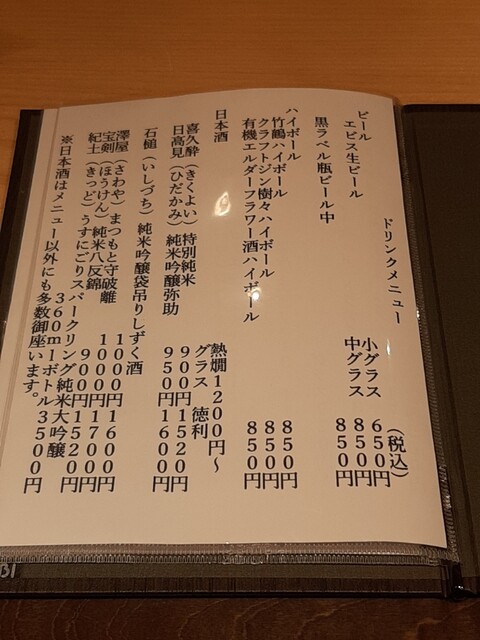 ドリンクメニュー
(税込)
ビール
エビス生ビール 小グラス 650円
中グラス 850円
黒ラベル瓶ビール中 850円
ハイボール
竹鶴ハイボール 850円
クラフトジン樹々ハイボール 850円
有機エルダーフラワー酒ハイボール 850円
日本酒 熱燗1200円〜
グラス 徳利
喜久酔(きくよい)特別純米 900円 1520円
日高見(ひだかみ)純米吟醸弥助 950円 1600円
石槌(いしづち)純米吟醸袋吊りしずく酒
澤屋(さわや)まつもと守破離 1000円 1600円
宝剣(ほうけん)純米八反錦 1000円 1700円
紀土(きっど)うすにごりスパークリング純米大吟醸 900円 1520円
360mlボトル3500円
※日本酒はメニュー以外にも多数御座います。